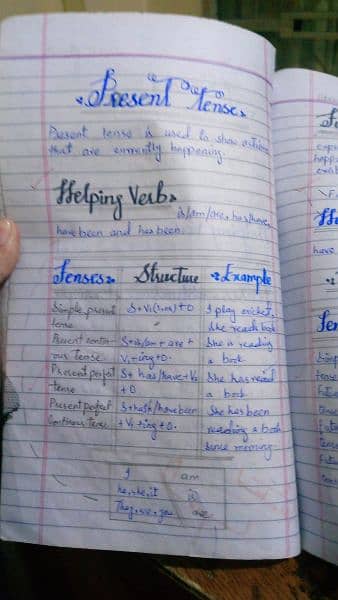 Present Tense
Present tense is used to show actions
that are currently happening.
Helping Verbs
is/am/are, has/have,
have been and has been.
Tenses Structure Example
Simple present tense S+V1(s,es)+O I play cricket. She reads book
Present continuous Tense S+is/am+are+ V1+ing+O. She is reading a book
Present perfect tense S+has/have+V3 +O She has read a book.
Present perfect Continous Tense S+has/have been +V1+ing+O. She has been reading a book since morning.
I am
he, she, it is
They, we, you are